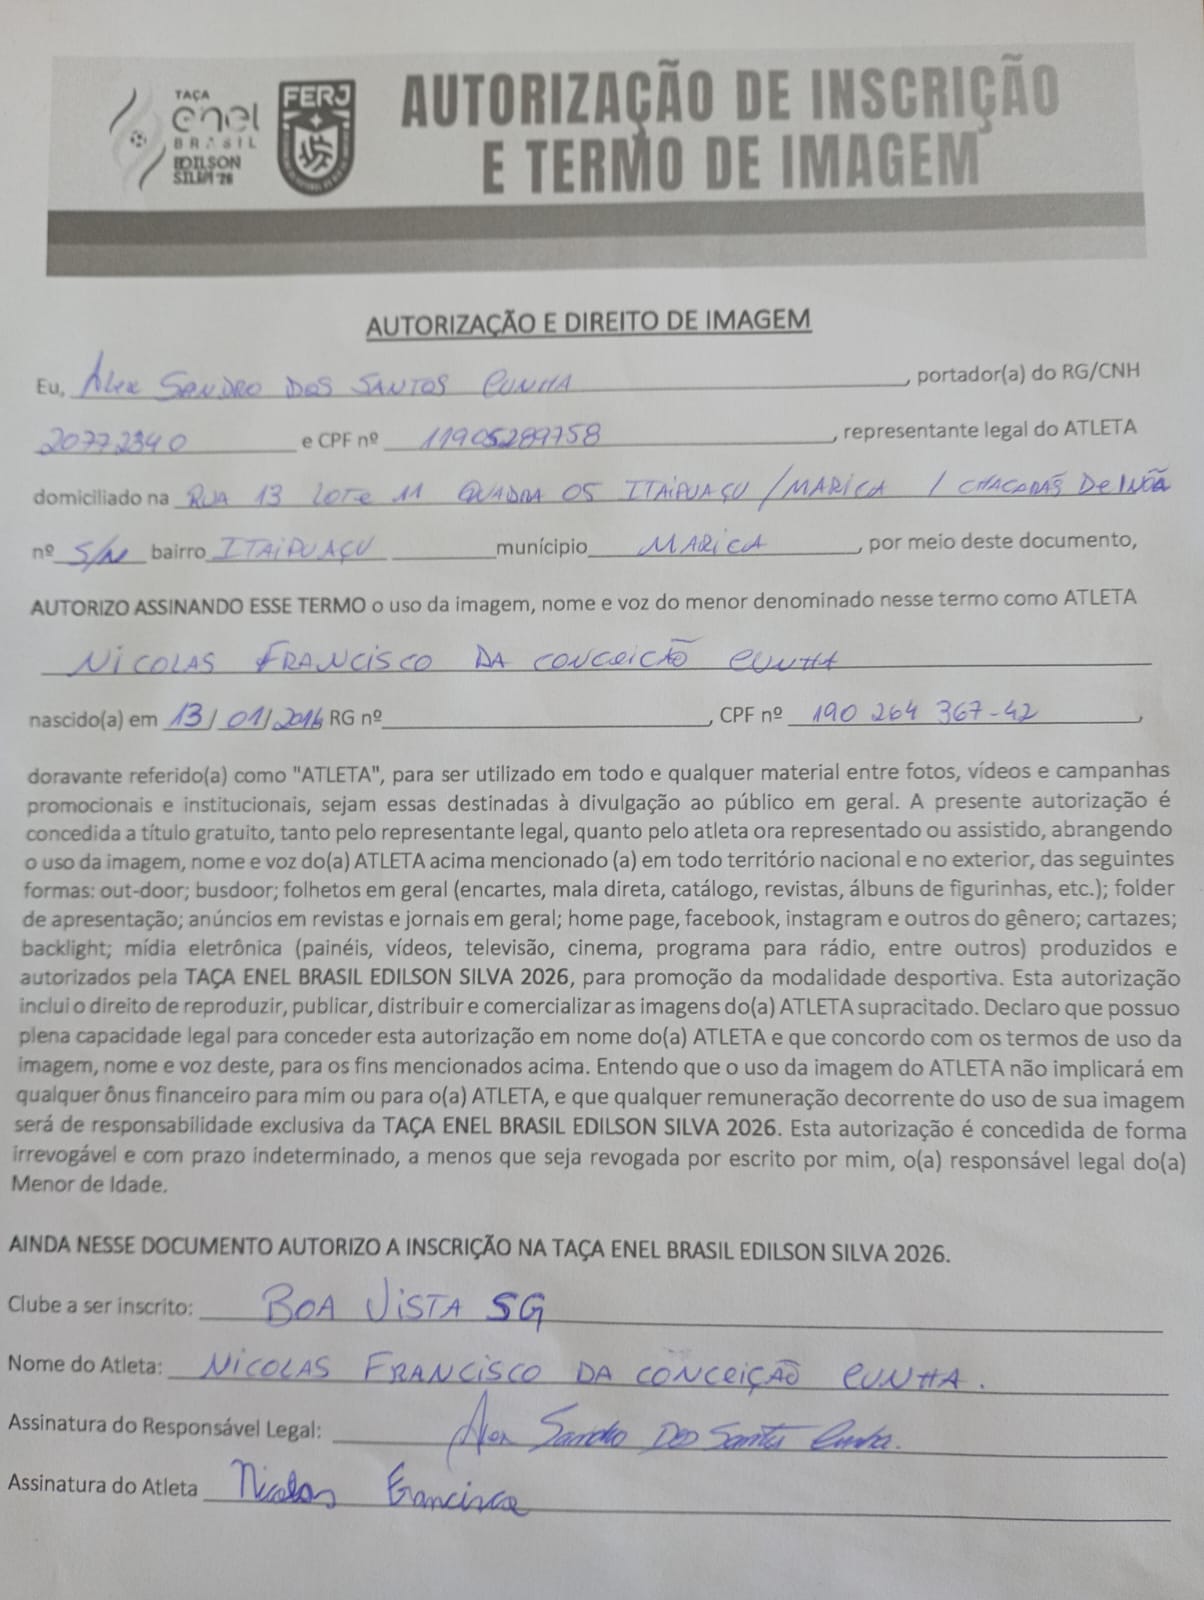 TAÇA
enel
BRASIL
EDILSON
SILVA '26
FERJ
AUTORIZAÇÃO DE INSCRIÇÃO
E TERMO DE IMAGEM
AUTORIZAÇÃO E DIREITO DE IMAGEM
Eu, Alex Sandro dos Santos Cunha, portador(a) do RG/CNH
20772340 e CPF nº 11905289758, representante legal do ATLETA
domiciliado na RUA 13 LOTE 11 QUADRA 05 ITAIPUAÇU / MARICA / CHACARÁS DE INÕA
nº S/N bairro ITAIPUAÇU munícipio MARICA, por meio deste documento,
AUTORIZO ASSINANDO ESSE TERMO o uso da imagem, nome e voz do menor denominado nesse termo como ATLETA
NICOLAS FRANCISCO DA CONCEICÃO CUNHA
nascido(a) em 13/01/2016 RG nº, CPF nº 190 264 367-42,
doravante referido(a) como "ATLETA", para ser utilizado em todo e qualquer material entre fotos, vídeos e campanhas
promocionais e institucionais, sejam essas destinadas à divulgação ao público em geral. A presente autorização é
concedida a título gratuito, tanto pelo representante legal, quanto pelo atleta ora representado ou assistido, abrangendo
o uso da imagem, nome e voz do(a) ATLETA acima mencionado (a) em todo território nacional e no exterior, das seguintes
formas: out-door; busdoor; folhetos em geral (encartes, mala direta, catálogo, revistas, álbuns de figurinhas, etc.); folder
de apresentação; anúncios em revistas e jornais em geral; home page, facebook, instagram e outros do gênero; cartazes;
backlight; mídia eletrônica (painéis, vídeos, televisão, cinema, programa para rádio, entre outros) produzidos e
autorizados pela TAÇA ENEL BRASIL EDILSON SILVA 2026, para promoção da modalidade desportiva. Esta autorização
inclui o direito de reproduzir, publicar, distribuir e comercializar as imagens do(a) ATLETA supracitado. Declaro que possuo
plena capacidade legal para conceder esta autorização em nome do(a) ATLETA e que concordo com os termos de uso da
imagem, nome e voz deste, para os fins mencionados acima. Entendo que o uso da imagem do ATLETA não implicará em
qualquer ônus financeiro para mim ou para o(a) ATLETA, e que qualquer remuneração decorrente do uso de sua imagem
será de responsabilidade exclusiva da TAÇA ENEL BRASIL EDILSON SILVA 2026. Esta autorização é concedida de forma
irrevogável e com prazo indeterminado, a menos que seja revogada por escrito por mim, o(a) responsável legal do(a)
Menor de Idade.
AINDA NESSE DOCUMENTO AUTORIZO A INSCRIÇÃO NA TAÇA ENEL BRASIL EDILSON SILVA 2026.
Clube a ser inscrito: BOA VISTA SG
Nome do Atleta: NICOLAS FRANCISCO DA CONCEIÇÃO CUNHA.
Assinatura do Responsável Legal: Alex Sandro Dos Santos Cunha.
Assinatura do Atleta Nicolas Francisco